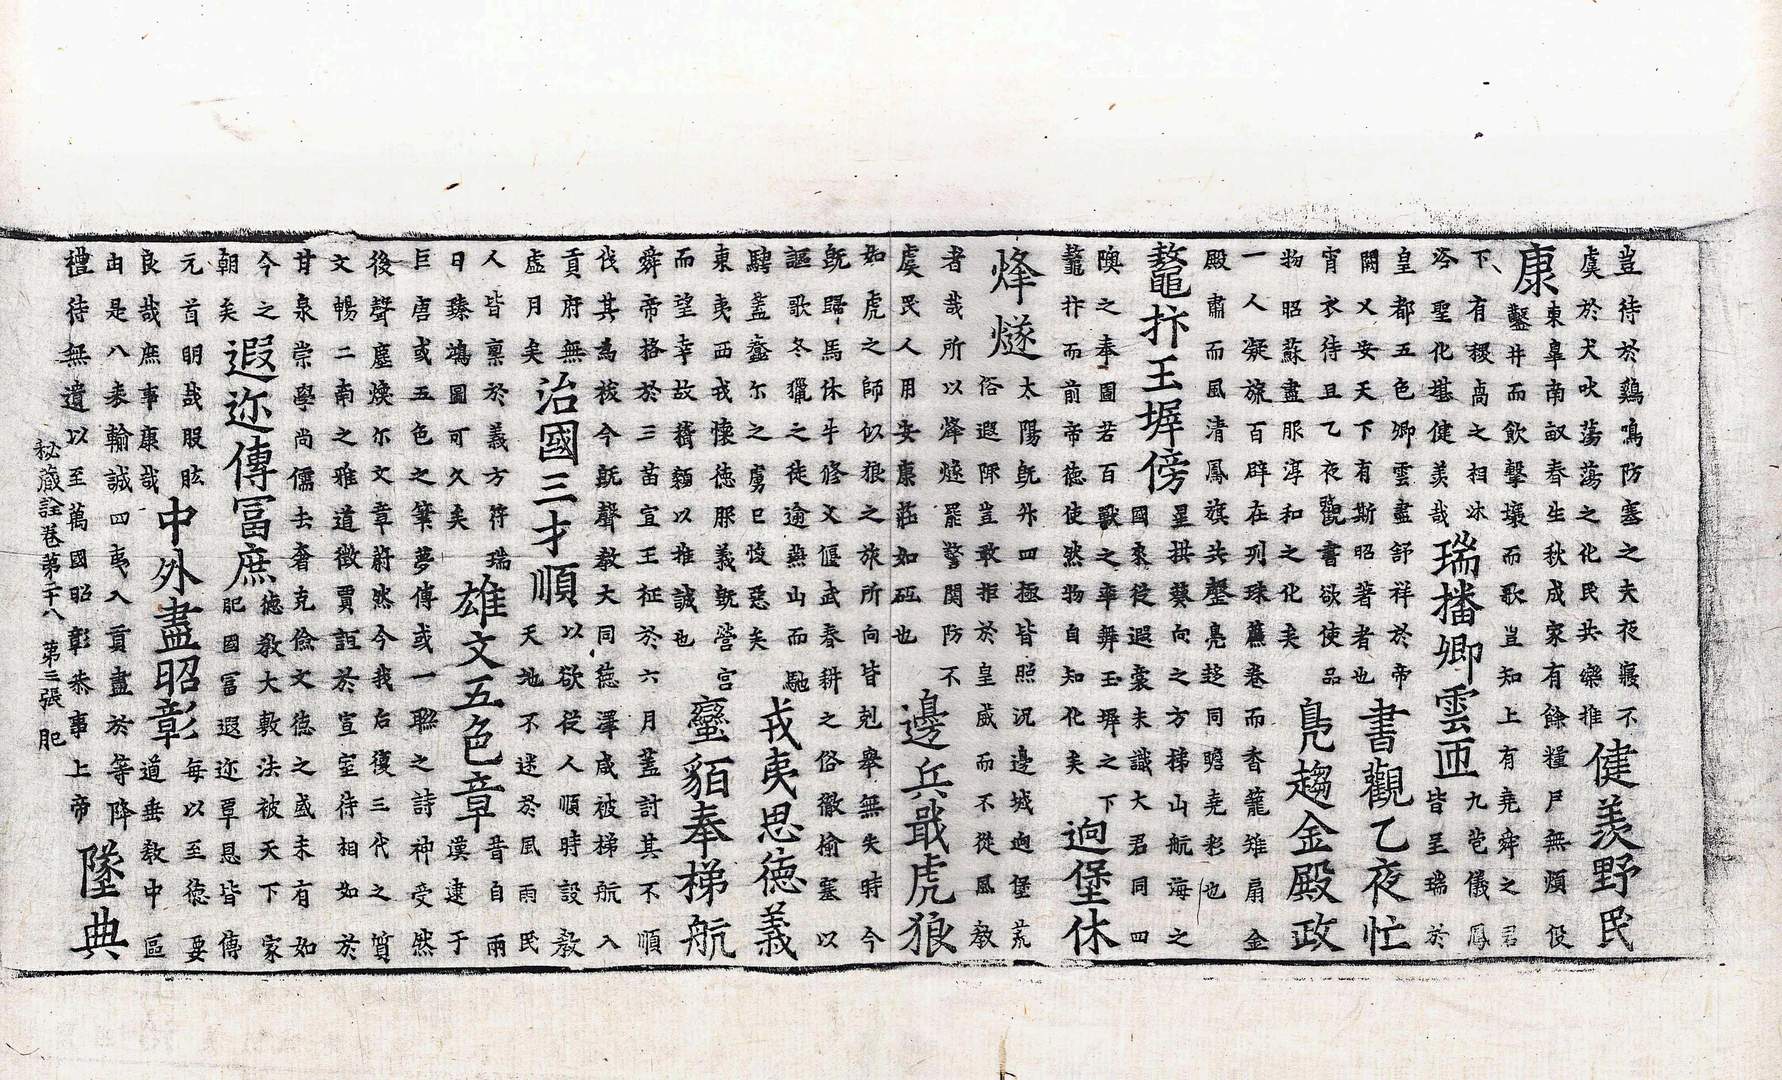 豈待於鷄鳴防塞之夫夜寢不
虞於犬吠蕩蕩之化民共樂推
健羨野民
康
東皐南畝春生秋成家有餘糧戶無煩役
鑿井而飲擊壤而歌豈知上有堯舜之君
下有稷卨之相
咨聖化堪健美哉
瑞播卿雲匝
九苞儀鳳
皆呈瑞於
皇都五色卿雲盡舒祥於帝
闕乂安天下有斯昭著者也
書觀乙夜忙
宵衣待旦乙夜觀書欲使品
物昭蘇盡服淳和之化矣
鳧趨金殿政
一人凝旒百辟在列珠簾卷而香籠雉扇金
殿肅而風清鳳旗共罄亮趍同瞻堯彩也
鼇抃玉墀傍
星拱蓂向之方梯山航海之
國來從遐裔未識大君同四
隩之奉圖若百獸之率舞玉墀之下
鼇抃而前帝德使然物自知化矣
逈堡休
烽燧
太陽旣升四極皆照况邊城逈堡荒
俗遐陬豈敢拒於皇威而不從風教
者哉所以烽燧罷警関防不
虞民人用安康莊如砥也
邊兵戢虎狼
如虎之師似狼之旅所向皆剋舉無失時今
旣歸馬休牛修文偃武春耕之俗徹榆塞以
謳歌冬獵之徒逾燕山而馳
騁蓋蠢尔之虜已悛惡矣
戎夷思德義
東夷西戎懷德服義旣營宮
而望幸故稽顙以推誠也
蠻貊奉梯航
舜帝格於三苗宣王征於六月蓋討其不順
伐其為祓今旣聲教大同德澤咸被梯航入
貢府無
虛月矣
治國三才順
以欲從人順時設教
天地不迷於風雨民
人皆稟於義方符瑞
日臻鴻圖可久矣
雄文五色章
昔自兩
漢逮于
巨唐或五色之筆夢傳或一聮之詩神受然
後聲塵煥尔文章蔚然今我后復三代之質
文暢二南之雅道徵賈誼於宣室待相如於
甘泉崇學尚儒去奢克儉文德之盛未有如
今之
朝矣
遐迩傳冨庶
德教大敷法被天下家
肥國冨遐迩覃恩皆傳
元首明哉股肱
良哉庶事康哉
中外盡昭彰
每以至德要
道垂教中區
由是八表輸誠四夷入貢盡於等降
禮待無遺以至萬國昭彰恭事上帝
墜典
秘藏詮卷第二十八 第三張 肥